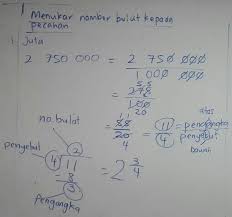 1 Menukar nombor bulat kepada
pecahan
i. Juta
2 750 000 = 2 750 000
1 000 000
55
= 275
100
20
11
= 55 = 11 = pengangka
20 4 penyebut
4
atas
bawah
no. bulat
penyebut
2
4 11
= 2 3/4
- 8
3
Pengangka